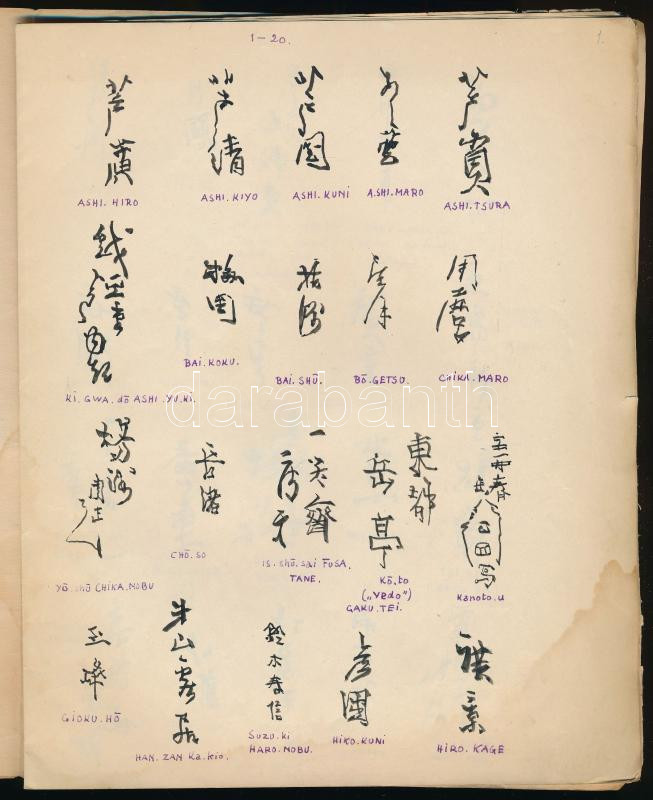 1-20.
1.
芦廣
芦清
芦国
あし麿
芦貫
ASHI.HIRO
ASHI.KIYO
ASHI.KUNI
ASHI.MARO
ASHI.TSURA
梅国
周麿
BAI.KOKU.
BAI.SHŪ.
BŌ.GETSU.
CHIKA.MARO
KI.GWA.dō ASHI.YU.KI.
darabanth
楊洲
長渚
一笑齋
房種
東都
岳亭
YŌ.shū CHIKA.NOBU
CHŌ.SO
IS.shū.sai FUSA.
TANE.
Kō.to
("Yedo")
GAKU.TEI.
Kanoto.u
玉峰
半山
鈴木春信
彦国
廣景
GIOKU.HŌ
HAN.ZAN Ka.kio.
SUZU.ki
HARO.NOBU.
HIKO.KUNI
HIRO.KAGE